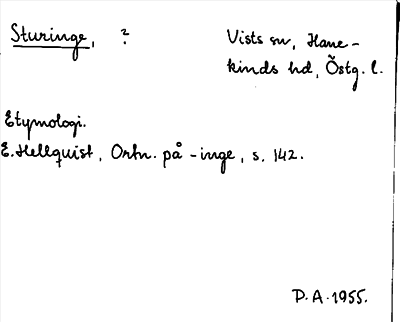 Sturinge, ? Vists sn, Hane-
kinds hd, Östg. l.
Etymologi.
E. Hellquist, Ortn. på -inge, s. 142.
P. A. 1955.